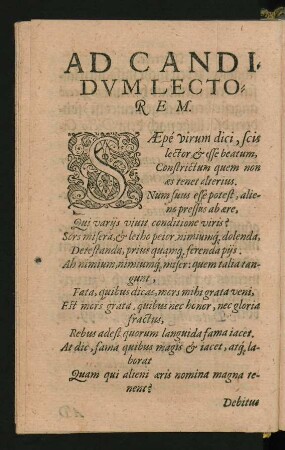 AD CANDI-
DVM LECTO-
REM.
SÆpé virum dici, scis
lector & esse beatum,
Constrictum quem non
æs tenet alterius.
Num suus esse potest, alie-
ns pressus ab ære,
Qui varijs viuit conditione viris?
Sors misera, & letho peior, nimiumq́; dolenda,
Detestanda, prius quamq́; ferenda pijs.
Ah nimium, nimiumq́; miser: quem talia tan-
gunt,
Fata, quibus dicas, mors mihi grata veni,
Est mors grata, quibus nec honor, nec gloria
fractus,
Rebus adest quorum languida fama iacet.
At dic, fama quibus magis & iacet, atq́; la-
borat
Quam qui alieni æris nomina magna te-
nent?
Debitus